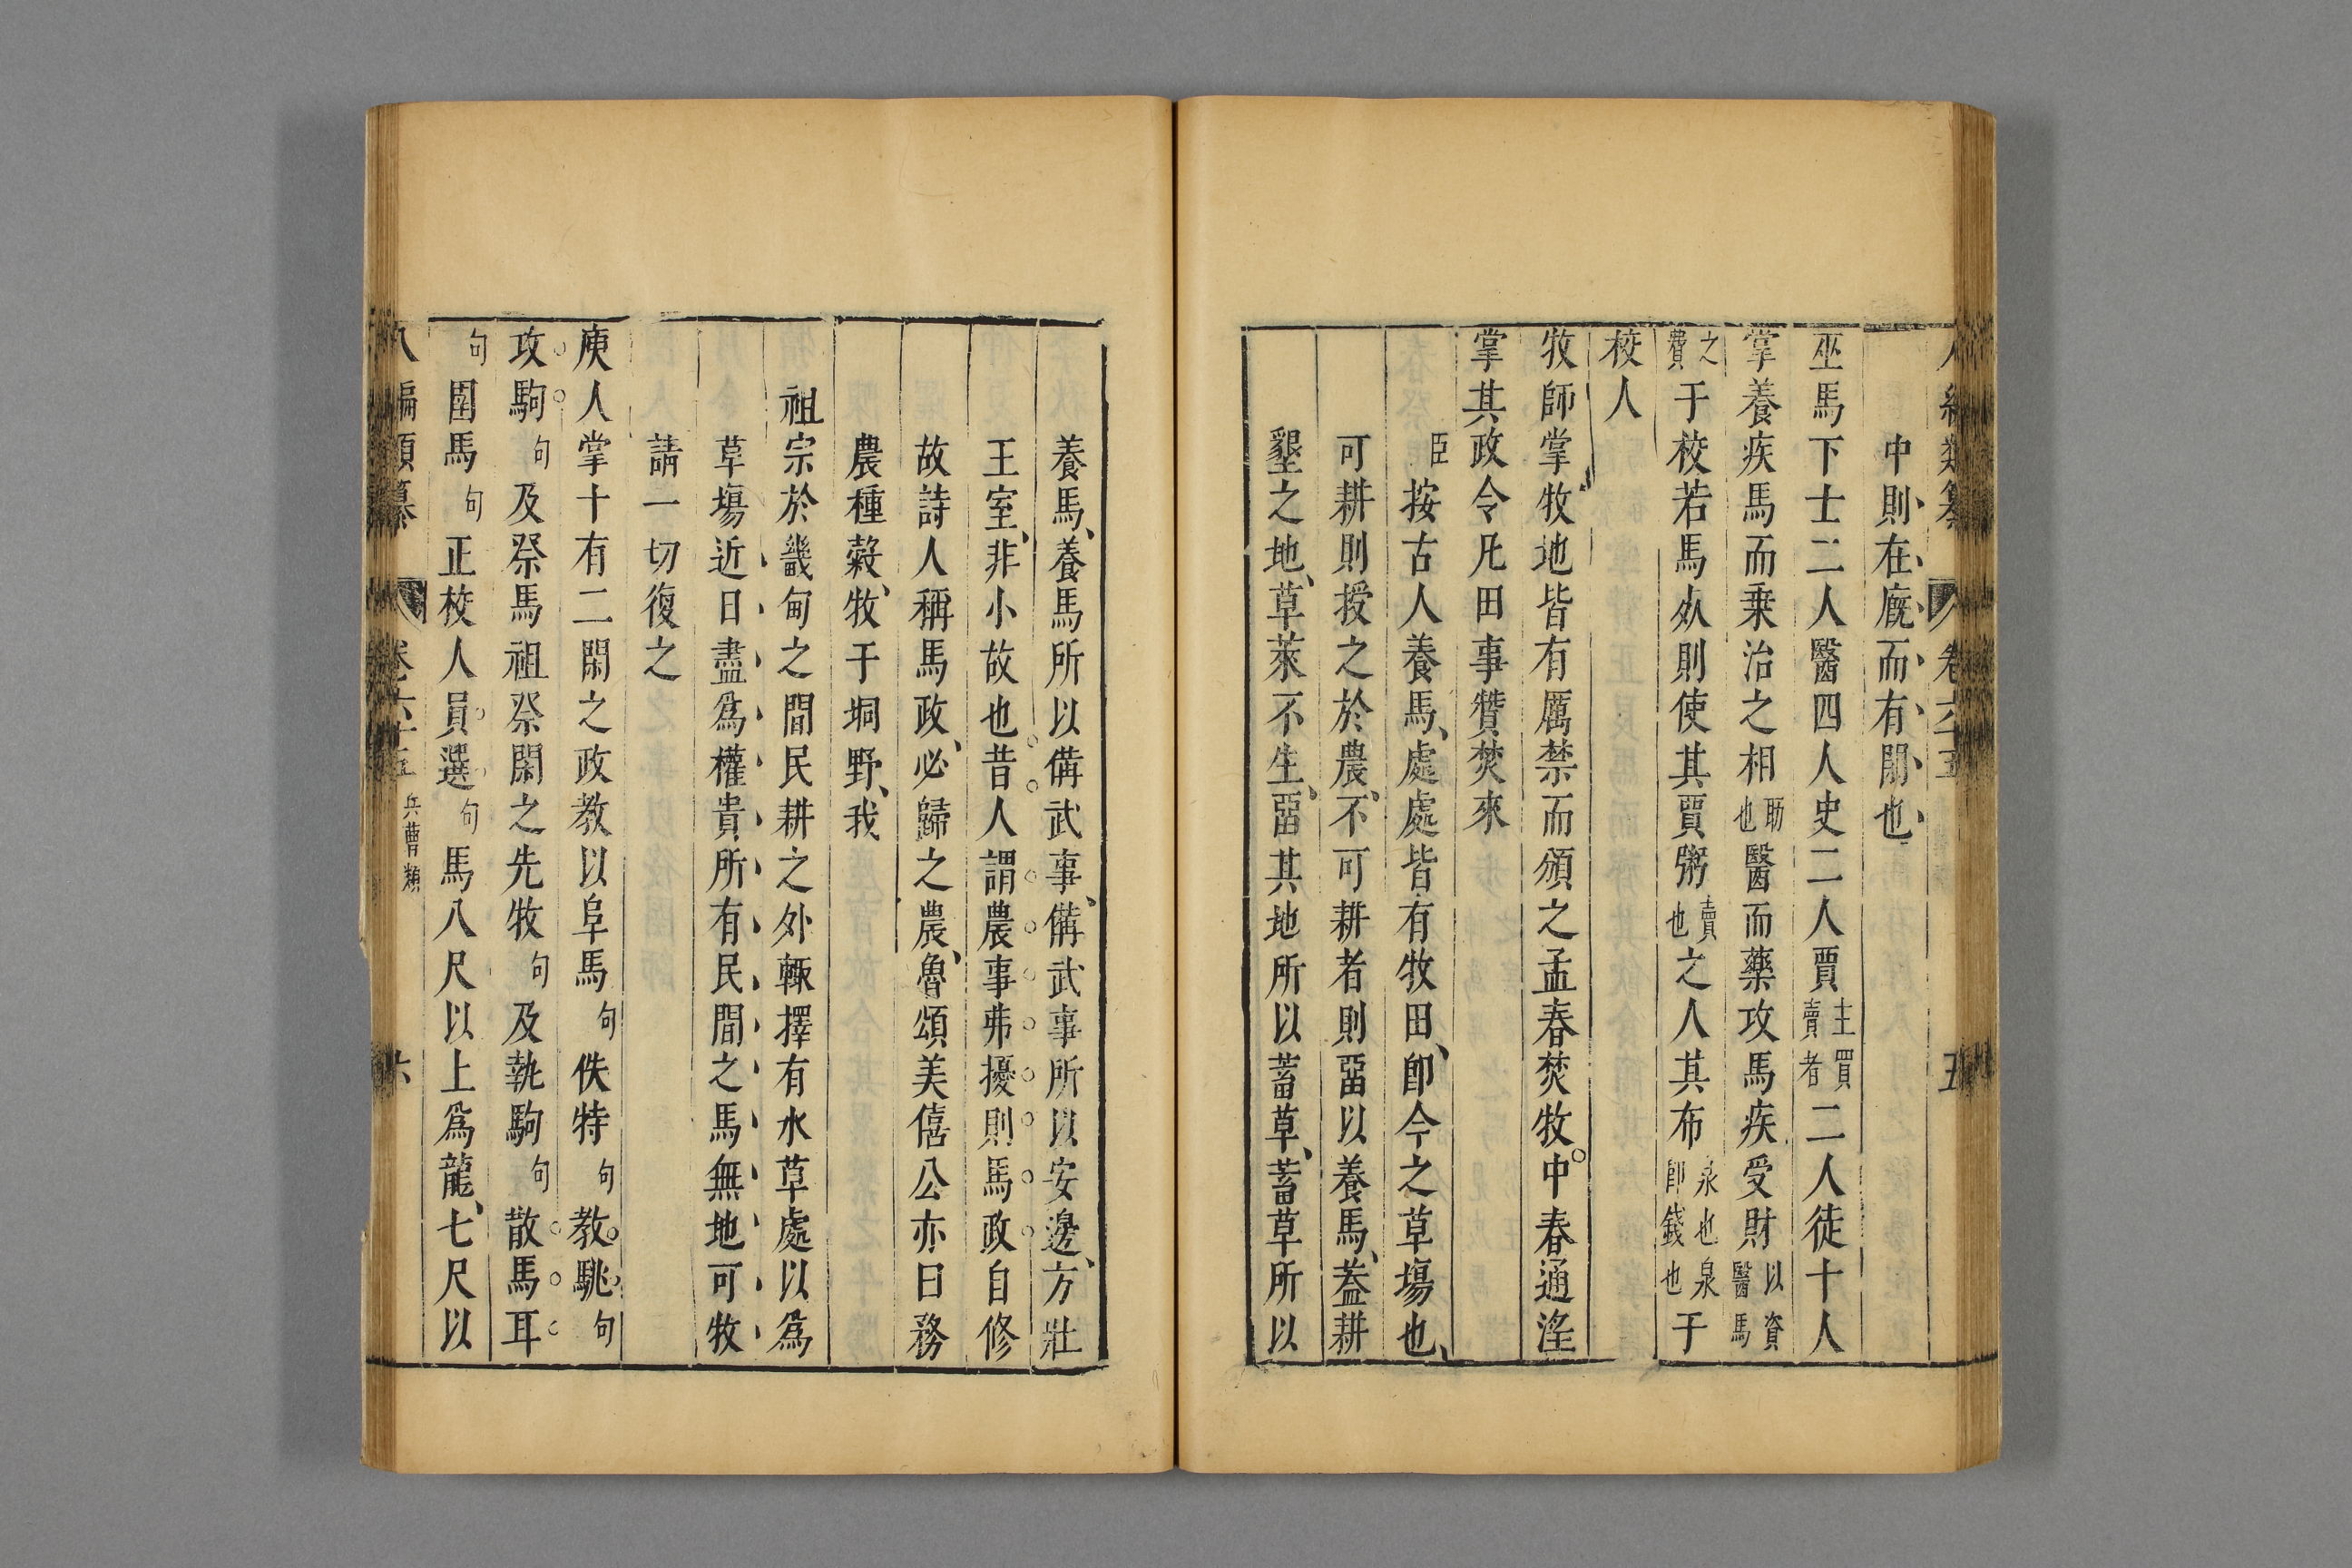 八編類纂 卷六十五 五
中則在廐而有閑也
巫馬下士二人醫四人史二人賈主買賣者二人徒十人
掌養疾馬而乗治之相助也醫而藥攻馬疾受財以資醫馬
之費于校若馬㱔則使其賈粥賣也之人其布泉也即錢也于
校人
牧師掌牧地皆有厲禁而頒之孟春焚牧中春通淫
掌其政令凡田事贊焚來
臣按古人養馬處處皆有牧田卽今之草塲也
可耕則授之於農不可耕者則畱以養馬葢耕
墾之地草萊不生畱其地所以蓄草蓄草所以
養馬養馬所以備武事備武事所以安邊方壯
王室非小故也昔人謂農事弗擾則馬政自修
故詩人稱馬政必歸之農魯頌美僖公亦曰務
農種穀牧于坰野我
祖宗於畿甸之間民耕之外輙擇有水草處以爲
草塲近日盡爲權貴所有民間之馬無地可牧
請一切復之
庾人掌十有二閑之政教以阜馬句佚特句教駣句
攻駒句及祭馬祖祭閑之先牧句及執駒句散馬耳
句圉馬句正校人員選句馬八尺以上爲龍七尺以
八編類纂 卷六十五 兵曹類 六